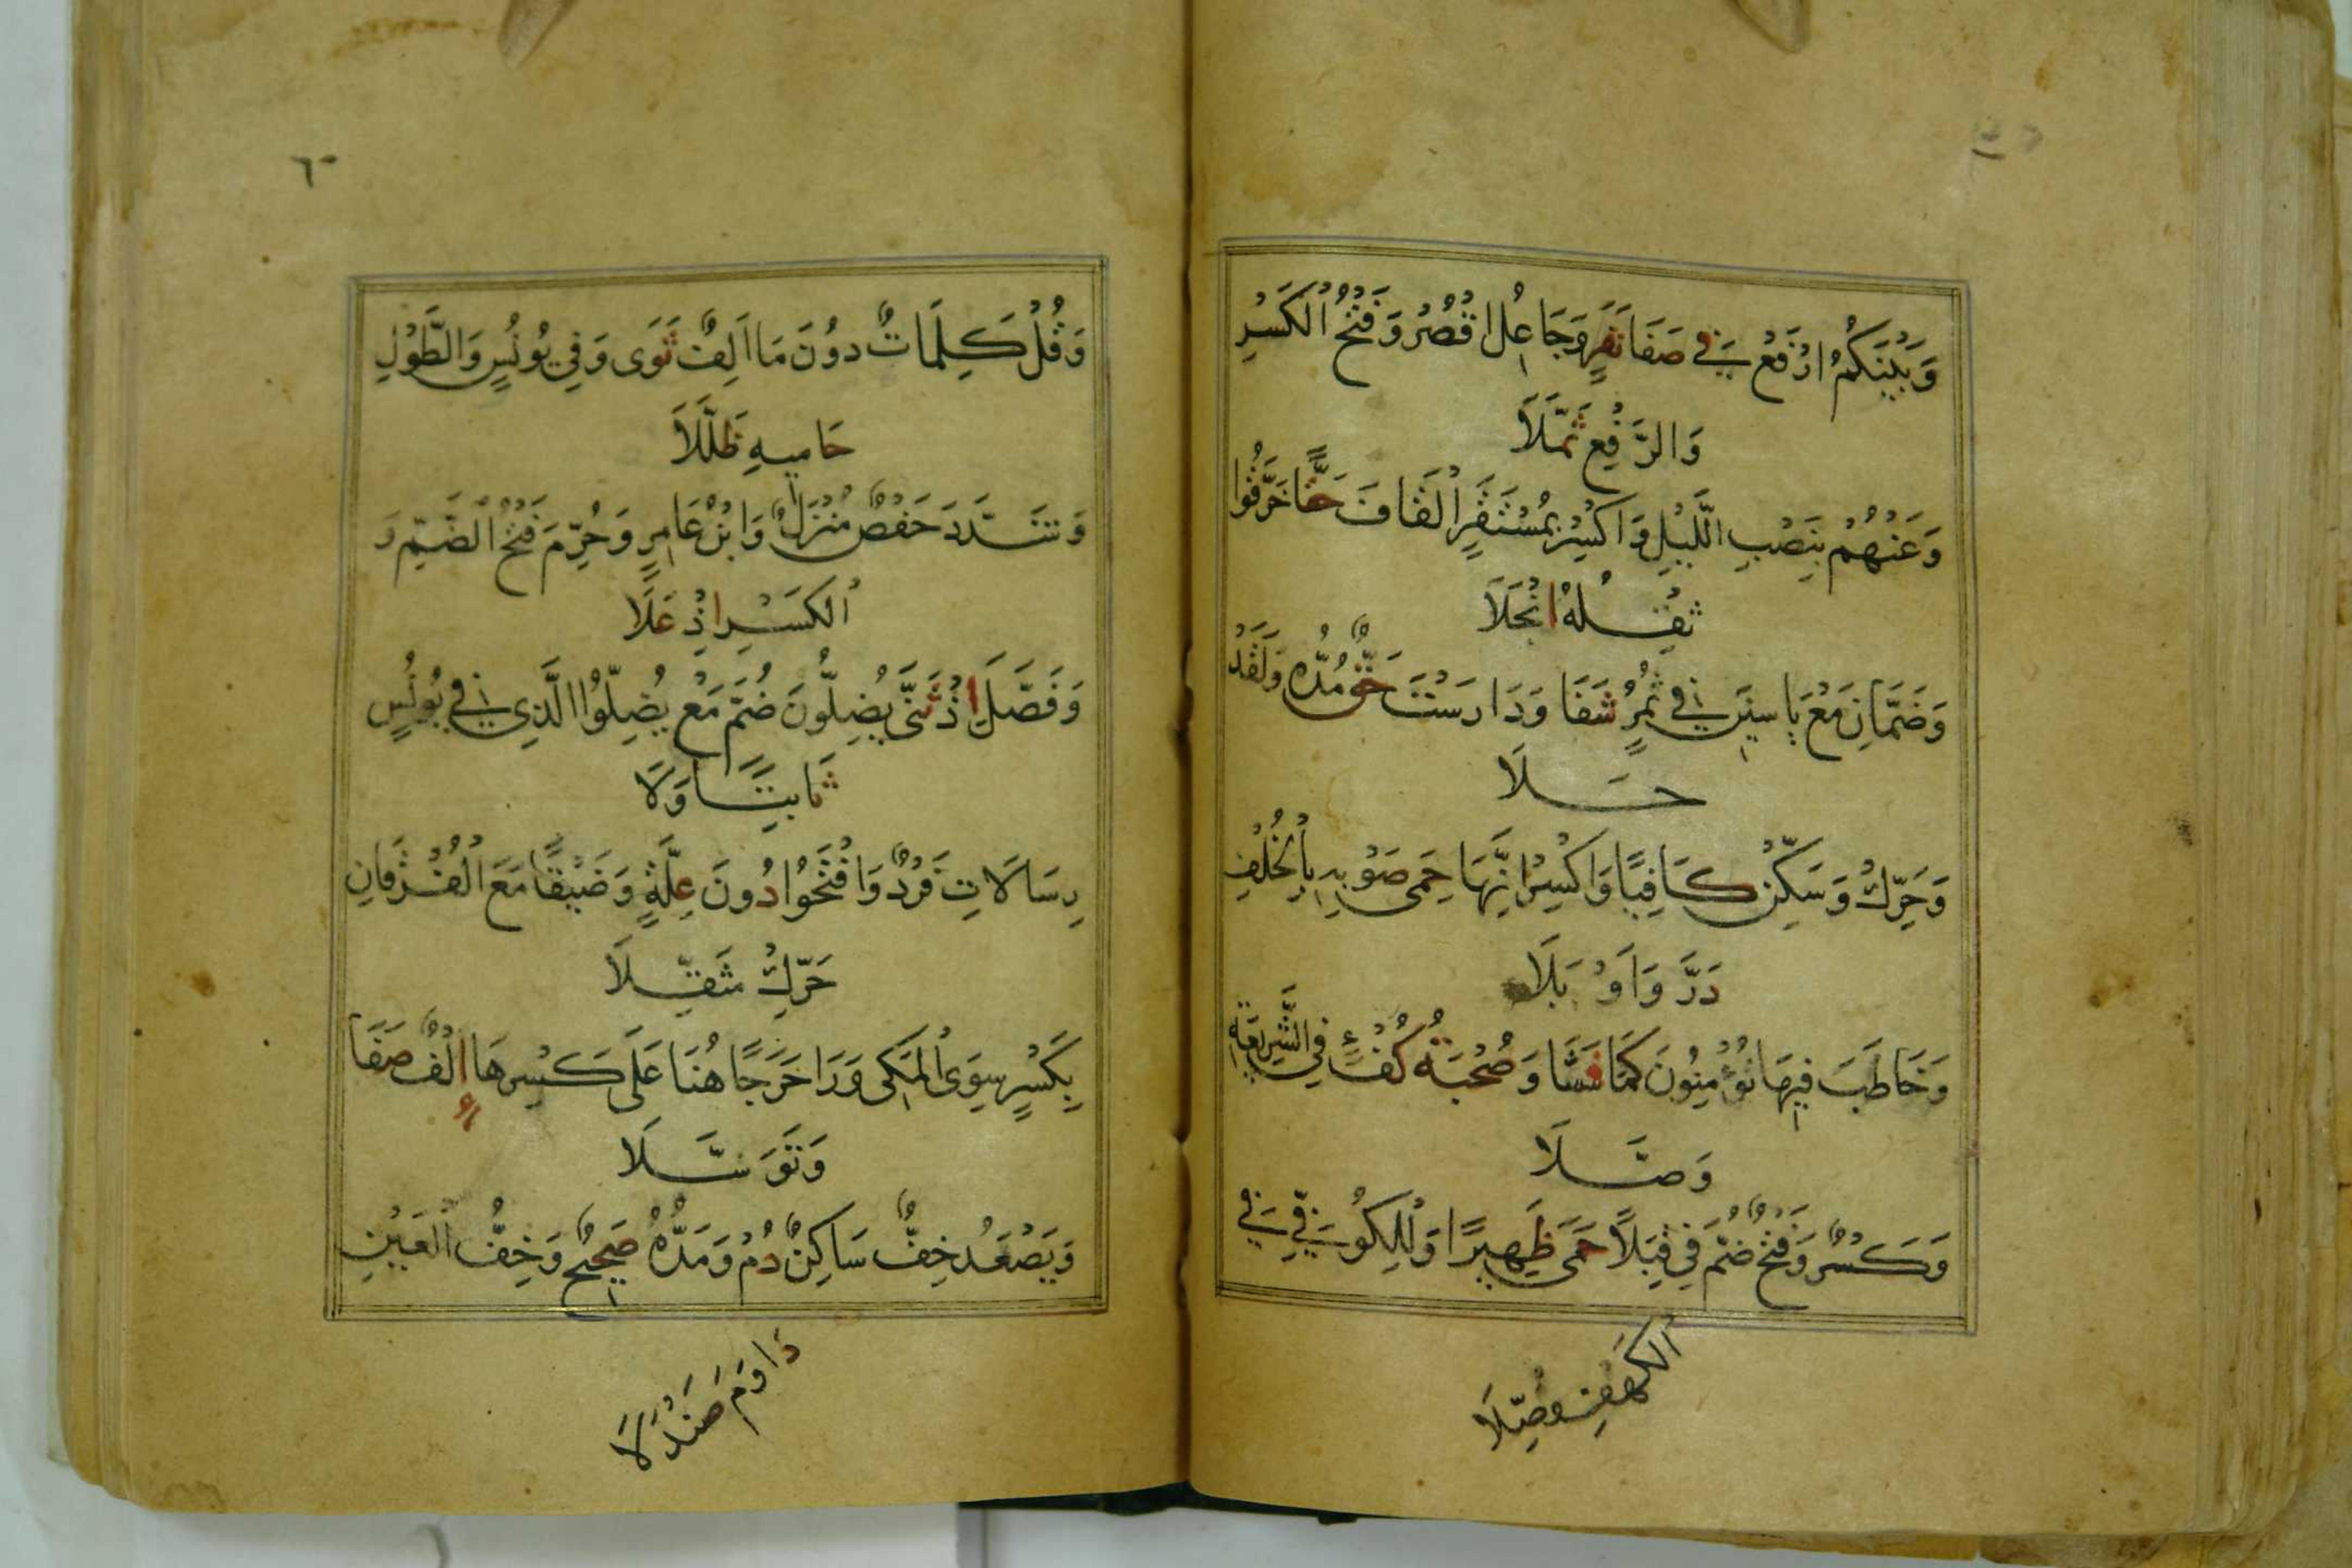 وَبَيْنَكُمُ ارْفَعْ فِي صَفَا نَفَرٍ وَجَاعِلُ اقْصُرْ وَفَتْحُ الْكَسْرِ
وَالرَّفْعِ ثُمِّلَا
وَعَنْهُمْ بِنَصْبِ اللَّيْلِ وَاكْسِرْ بِمُسْتَقَرٍّ الْقَافَ حَقًّا خَرَّقُوا
ثِقْلُهُ انْجَلَا
وَضَمَّانِ مَعْ يَاسِينَ فِي ثَمَرٍ شَفَا وَدَارَسْتَ حَقٌّ مُدُّهُ وَلَقَدْ
حَلَا
وَحَرِّكْ وَسَكِّنْ كَافِيًا وَاكْسِرْ انَّهَا حِمَى صَوْبِهِ بِالْخُلْفِ
دَرَّ وَأَوْبَلَا
وَخَاطَبَ فِيهَا تُؤْمِنُونَ كَمَا فَشَا وَصُحْبَةُ كُفْئٍ فِي الشَّرِيعَةِ
وَصَّلَا
وَكَسْرٌ وَفَتْحٌ ضُمَّ فِي قِبَلًا حَمَى ظَهِيرًا وَلِلْكُوفِيِّ فِي
الْكَهْفِ وُصِّلَا
٦٠
وَقُلْ كَلِمَاتٌ دُونَ مَا أَلِفٍ ثَوَى وَفِي يُونُسٍ وَالطَّوْلِ
حَامِيهِ ظَلَّلَا
وَشَدَّدَ حَفْصٌ مُنْزَلٌ وَابْنُ عَامِرٍ وَحُرِّمَ فَتْحُ الضَّمِّ وَ
الْكَسْرِ إِذْ عَلَا
وَفَصَّلَ إِذْ ثَنَّى يُضِلُّونَ ضُمَّ مَعْ يُضِلُّوا الَّذِي فِي يُونُسٍ
ثَابِتًا وَلَا
رِسَالَاتِ فَرْدٌ وَافْتَحُوا دُونَ عِلَّةٍ وَضَيْقًا مَعَ الْفُرْقَانِ
حَرِّكْ مُثَقِّلَا
بِكَسْرٍ سِوَى الْمَكِّي وَرَا حَرَجًا هُنَا عَلَى كَسْرِهَا إِلْفٌ صَفَا
وَتَوَسَّلَا
وَيَصْعَدُ خِفٌّ سَاكِنٌ دُمْ وَمَدُّهُ صَحِيحٌ وَخِفُّ الْعَيْنِ
دَاوَمَ صَنْدَلَا